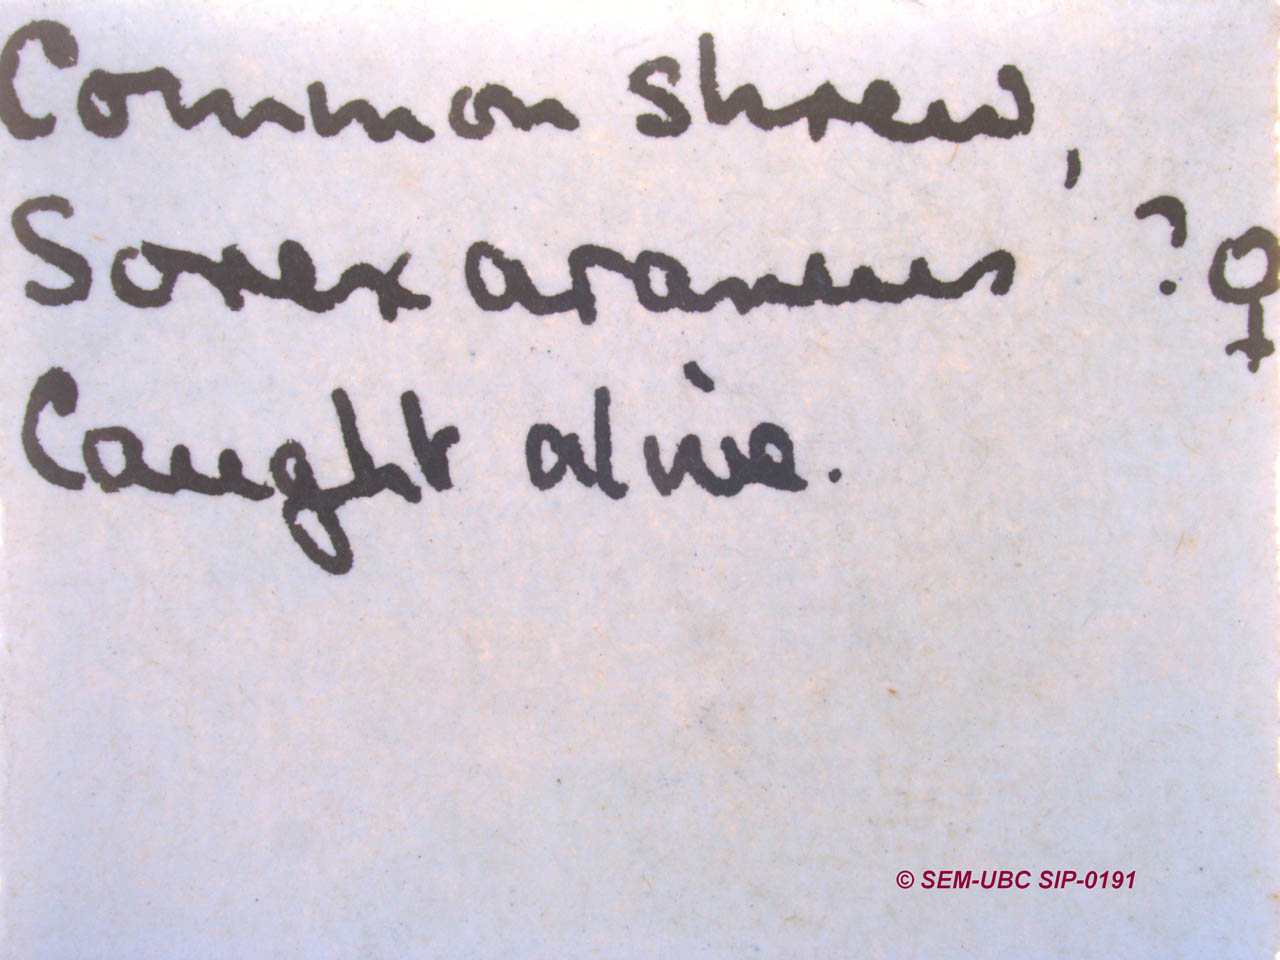 Common shrew,
Sorex araneus ? ♀
Caught alive.
© SEM-UBC SIP-0191